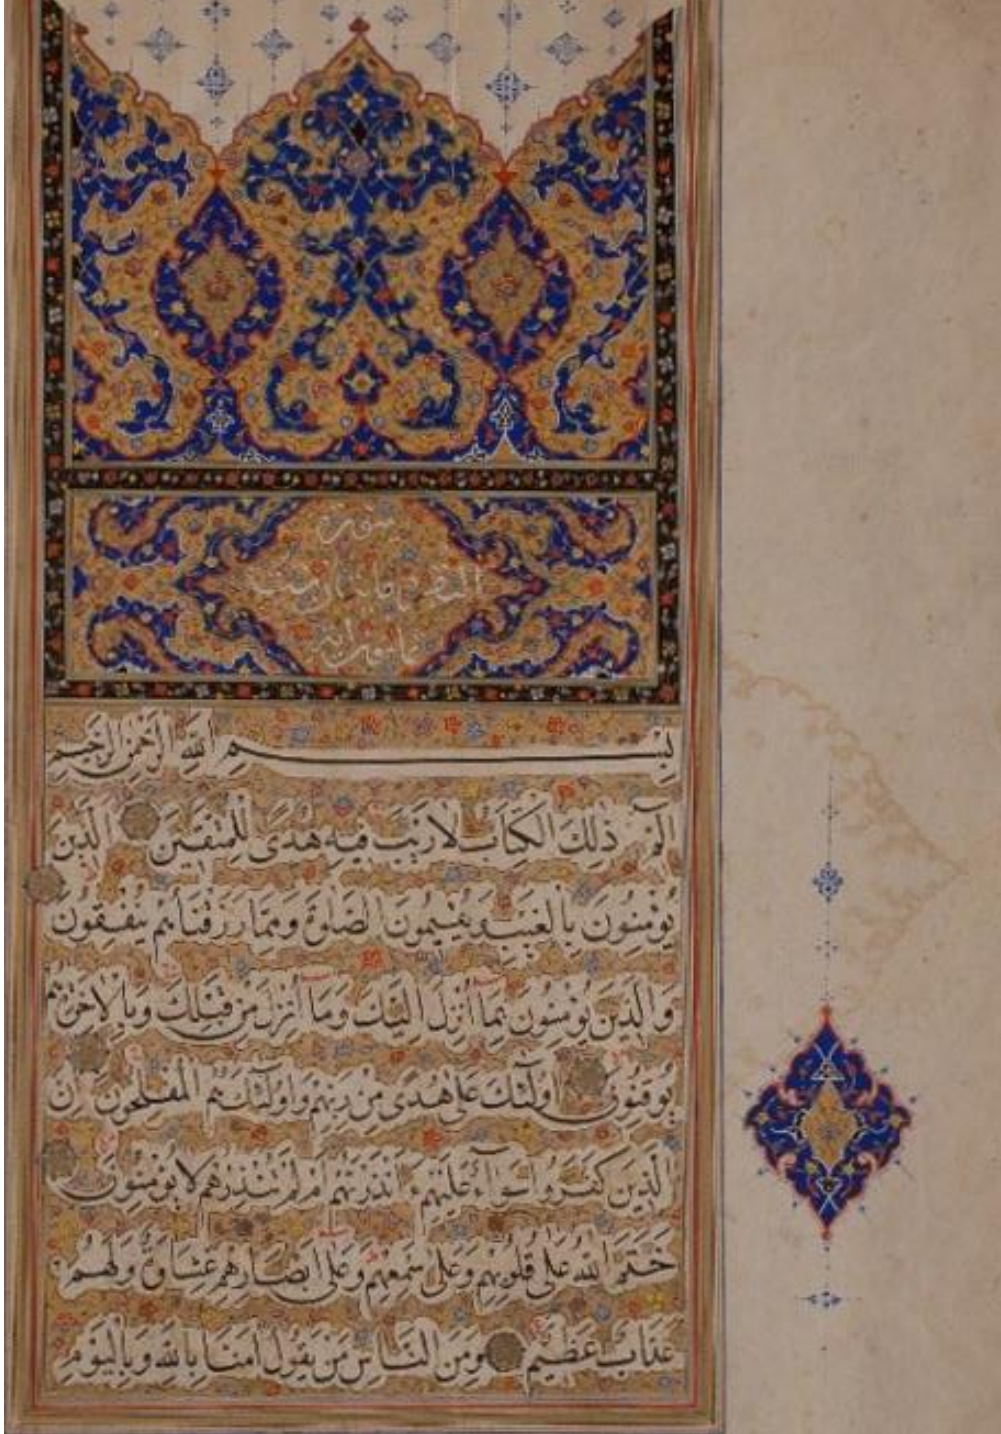 سورة
بسم الله الرحمن الرحيم
الم ذلك الكتاب لا ريب فيه هدى للمتقين الذين
يؤمنون بالغيب ويقيمون الصلوة ومما رزقناهم ينفقون
والذين يؤمنون بما أنزل اليك وما أنزل من قبلك وبالاخرة هم
يوقنون اولئك على هدى من ربهم واولئك هم المفلحون ان
الذين كفروا سواء عليهم ءانذرتهم ام لم تنذرهم لا يؤمنون
ختم الله على قلوبهم وعلى سمعهم وعلى ابصارهم غشاوة ولهم
عذاب عظيم ومن الناس من يقول امنا بالله وباليوم